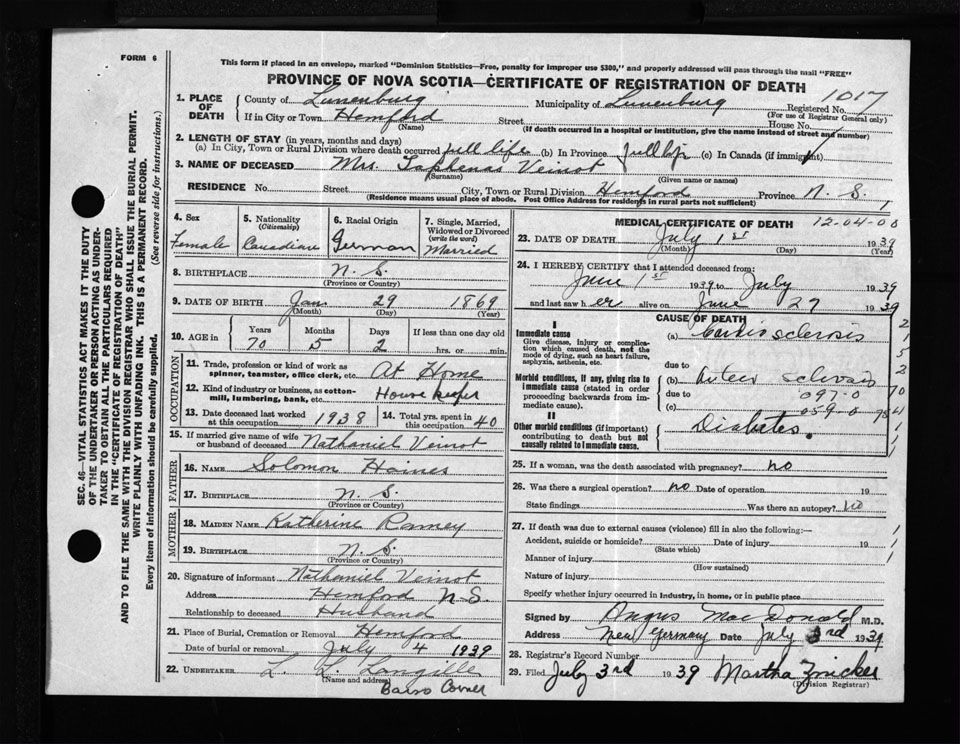 FORM 6
This form if placed in an envelope, marked "Dominion Statistics—Free, penalty for improper use $300," and properly addressed will pass through the mail "FREE"
PROVINCE OF NOVA SCOTIA—CERTIFICATE OF REGISTRATION OF DEATH
1017
1. PLACE OF DEATH
County of Lunenburg Municipality of Lunenburg Registered No.
(For use of Registrar General only)
If in City or Town Hemford Street House No.
(Name) (If death occurred in a hospital or institution, give the name instead of street and number)
2. LENGTH OF STAY (in years, months and days)
(a) In City, Town or Rural Division where death occurred full life (b) In Province full life (c) In Canada (if immigrant)
3. NAME OF DECEASED Mrs. Veinot
(Surname) (Given name or names)
RESIDENCE No. Street City, Town or Rural Division Hemford Province N. S.
(Residence means usual place of abode. Post Office Address for residents in rural parts not sufficient)
4. Sex
Female
5. Nationality
(Citizenship)
Canadian
6. Racial Origin
German
7. Single, Married, Widowed or Divorced
(write the word)
Married
8. BIRTHPLACE N. S.
(Province or Country)
9. DATE OF BIRTH Jan. 29 1869
(Month) (Day) (Year)
10. AGE in
Years Months Days If less than one day old
70 5 2 hrs. or min.
OCCUPATION
11. Trade, profession or kind of work as spinner, teamster, office clerk, etc. At Home
12. Kind of industry or business, as cotton-mill, lumbering, bank, etc. House keeper
13. Date deceased last worked at this occupation 1938
14. Total yrs. spent in this occupation 40
15. If married give name of wife or husband of deceased Nathaniel Veinot
FATHER
16. NAME Solomon
17. BIRTHPLACE N. S.
(Province or Country)
MOTHER
18. MAIDEN NAME Katherine Ramey
19. BIRTHPLACE N. S.
(Province or Country)
20. Signature of informant Nathaniel Veinot
Address Hemford N. S.
Relationship to deceased Husband
21. Place of Burial, Cremation or Removal Hemford
Date of burial or removal July 4 1939
22. UNDERTAKER L. L. Langille
(Name and address)
Corner
MEDICAL CERTIFICATE OF DEATH
12-04-00
23. DATE OF DEATH July 1st 1939
(Month) (Day) (Year)
24. I HEREBY CERTIFY that I attended deceased from:
June 1st 1939 to July 1939
and last saw her alive on June 27 1939
CAUSE OF DEATH
I
Immediate cause
Give disease, injury or complication which caused death, not the mode of dying, such as heart failure, asphyxia, asthenia, etc.
(a) Cardio sclerosis
due to
Morbid conditions, if any, giving rise to immediate cause (stated in order proceeding backwards from immediate cause).
(b) Arterio sclerosis
due to 097-0
(c) 059-0
II
Other morbid conditions (if important) contributing to death but not causally related to immediate cause.
Diabetes.
25. If a woman, was the death associated with pregnancy? no
26. Was there a surgical operation? no Date of operation 19
State findings Was there an autopsy? no
27. If death was due to external causes (violence) fill in also the following:—
Accident, suicide or homicide? Date of injury 19
(State which)
Manner of injury
(How sustained)
Nature of injury
Specify whether injury occurred in Industry, in home, or in public place
Signed by Angus MacDonald M.D.
Address New Germany Date July 3rd 1939
28. Registrar's Record Number
29. Filed July 3rd 1939 Martha Zwicker
(Division Registrar)
SEC. 46—VITAL STATISTICS ACT MAKES IT THE DUTY
OF THE UNDERTAKER OR PERSON ACTING AS UNDER-
TAKER TO OBTAIN ALL THE PARTICULARS REQUIRED
IN THE "CERTIFICATE OF REGISTRATION OF DEATH"
AND TO FILE THE SAME WITH THE DIVISION REGISTRAR WHO SHALL ISSUE THE BURIAL PERMIT.
WRITE PLAINLY WITH UNFADING INK. THIS IS A PERMANENT RECORD.
Every item of information should be carefully supplied. (See reverse side for instructions.)